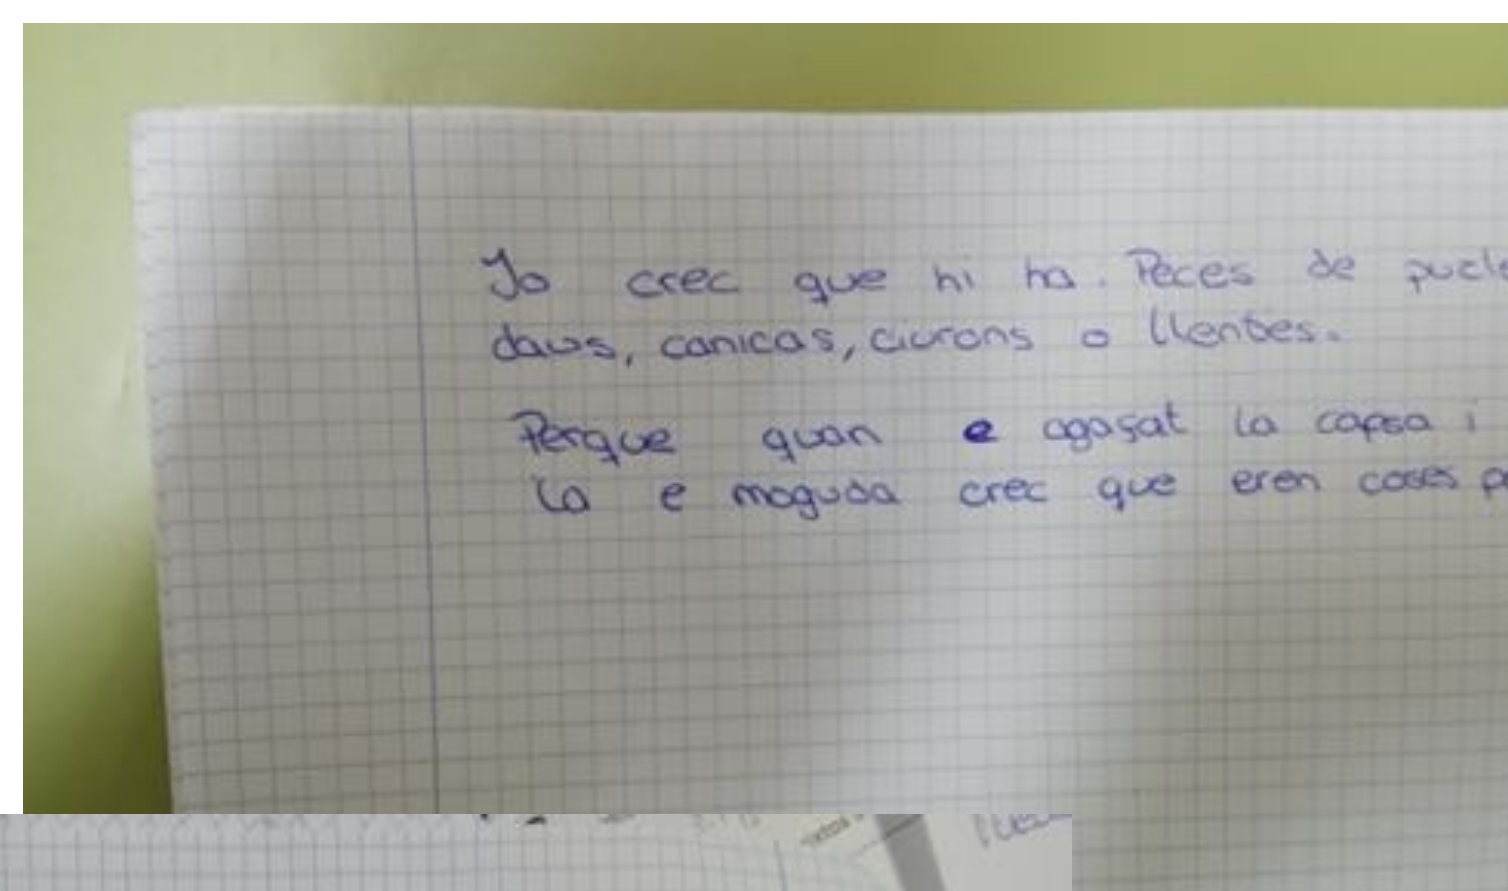 Jo crec que hi ha. Peces de
daus, canicas, ciurons o llenties.
Perque quan e agafat la capsa i
la e moguda crec que eren coses